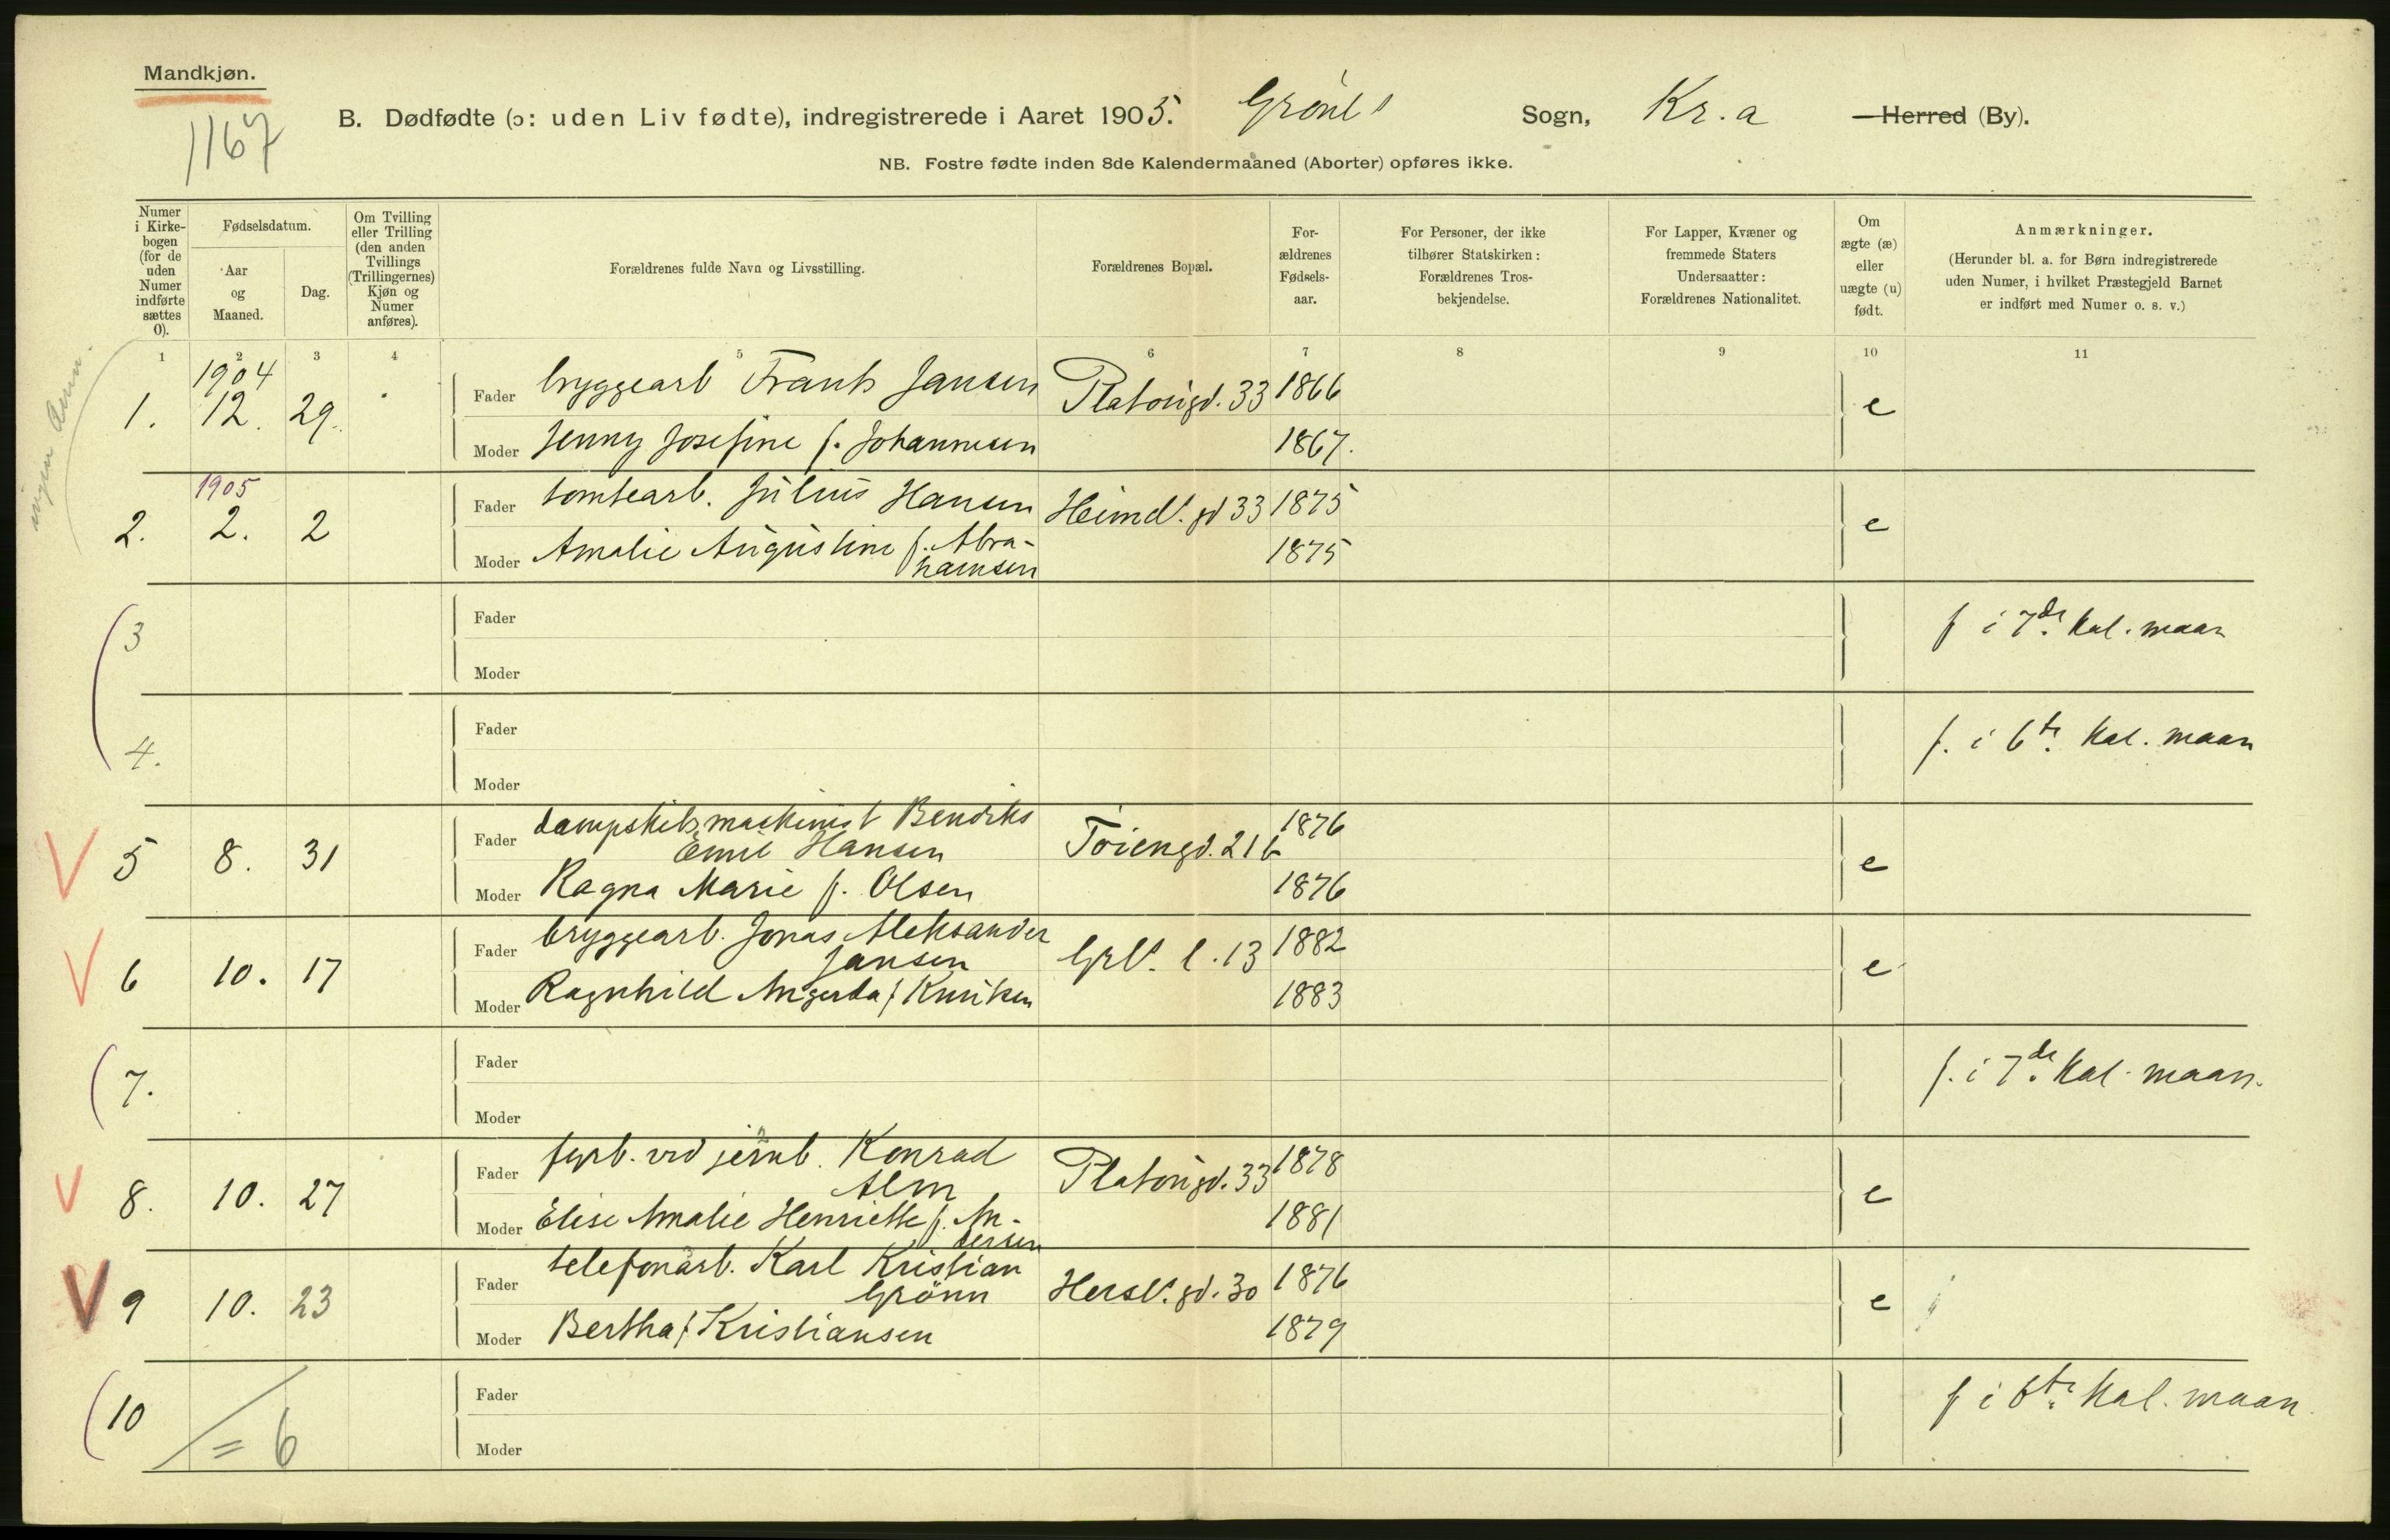 Mandkjøn.
1167
B. Dødfødte (ɔ: uden Liv fødte), indregistrerede i Aaret 1905. Grønl. Sogn, Kr.a Herred (By).
NB. Fostre fødte inden 8de Kalendermaaned (Aborter) opføres ikke.
Numer i Kirkebogen (for de uden Numer indførte sættes 0).
Fødselsdatum.
Aar og Maaned.
Dag.
Om Tvilling eller Trilling (den anden Tvillings (Trillingernes) Kjøn og Numer anføres).
Forældrenes fulde Navn og Livsstilling.
Forældrenes Bopæl.
Forældrenes Fødselsaar.
For Personer, der ikke tilhører Statskirken: Forældrenes Trosbekjendelse.
For Lapper, Kvæner og fremmede Staters Undersaatter: Forældrenes Nationalitet.
Om ægte (æ) eller uægte (u) født.
Anmærkninger.
(Herunder bl. a. for Børn indregistrerede uden Numer, i hvilket Præstegjeld Barnet er indført med Numer o. s. v.)
1 2 3 4 5 6 7 8 9 10 11
1904
1. 12. 29. Fader bryggearb Frants Jansen Platougd. 33 1866 e
Moder Jenny Josefine f. Johannesen 1867.
1905
2. 2. 2 Fader tomtearb. Julius Hansen Heimdl. gd 33 1875 e
Moder Amalie Augustine f. Abra-
hamsen 1875
3 Fader f i 7de Kal. maan
Moder
4. Fader f. i 6te Kal. maan
Moder
V 5 8. 31 Fader dampskibsmaskinist Bendiks
Emil Hansen Tøiengd. 21 b 1876 e
Moder Ragna Marie f. Olsen 1876
V 6 10. 17 Fader bryggearb. Jonas Aleksander
Jansen Grl. l. 13 1882 e
Moder Ragnhild f 1883
7. Fader f. i 7de Kal. maan.
Moder
V 8. 10. 27 Fader fyrb. ved jernb. Konrad
Alm Platougd. 33 1878 e
Moder Elise Amalie Henriette f. An-
dersen 1881
V 9 10. 23 Fader telefonarb. Karl Kristian
Grönn Hersl. gd. 30 1876 e
Moder Bertha f Kristiansen 1879
10 Fader f i 6te Kal. maan
= 6
Moder